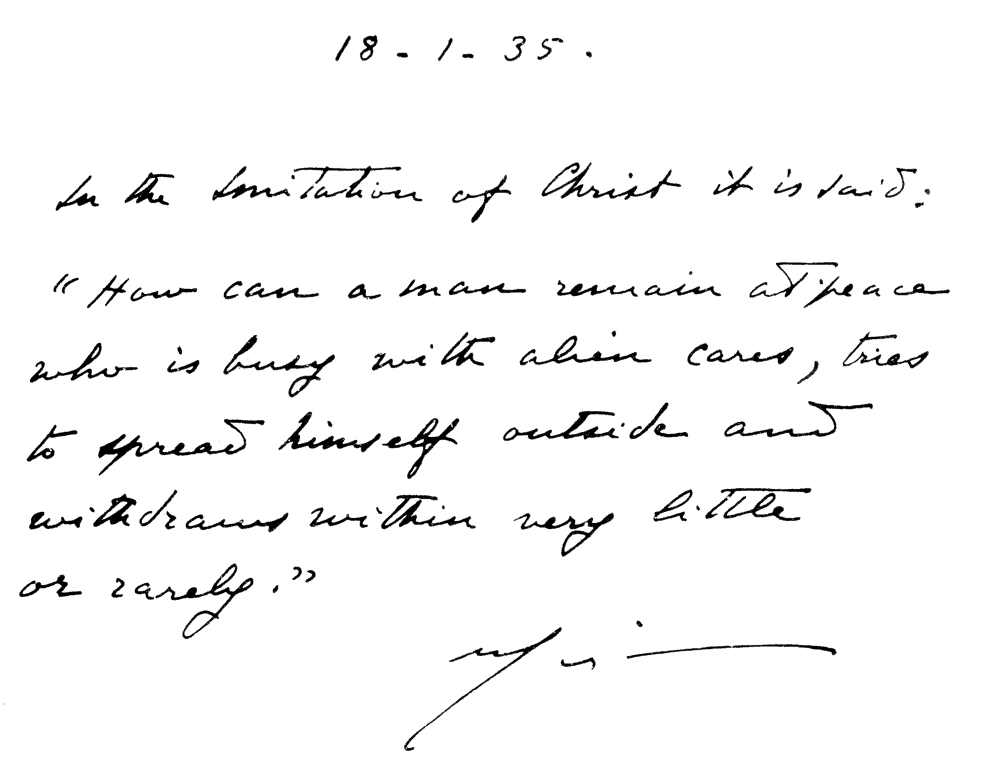 18-1-35.
In the Imitation of Christ it is said:
"How can a man remain at peace
who is busy with alien cares, tries
to spread himself outside and
withdraws within very little
or rarely."